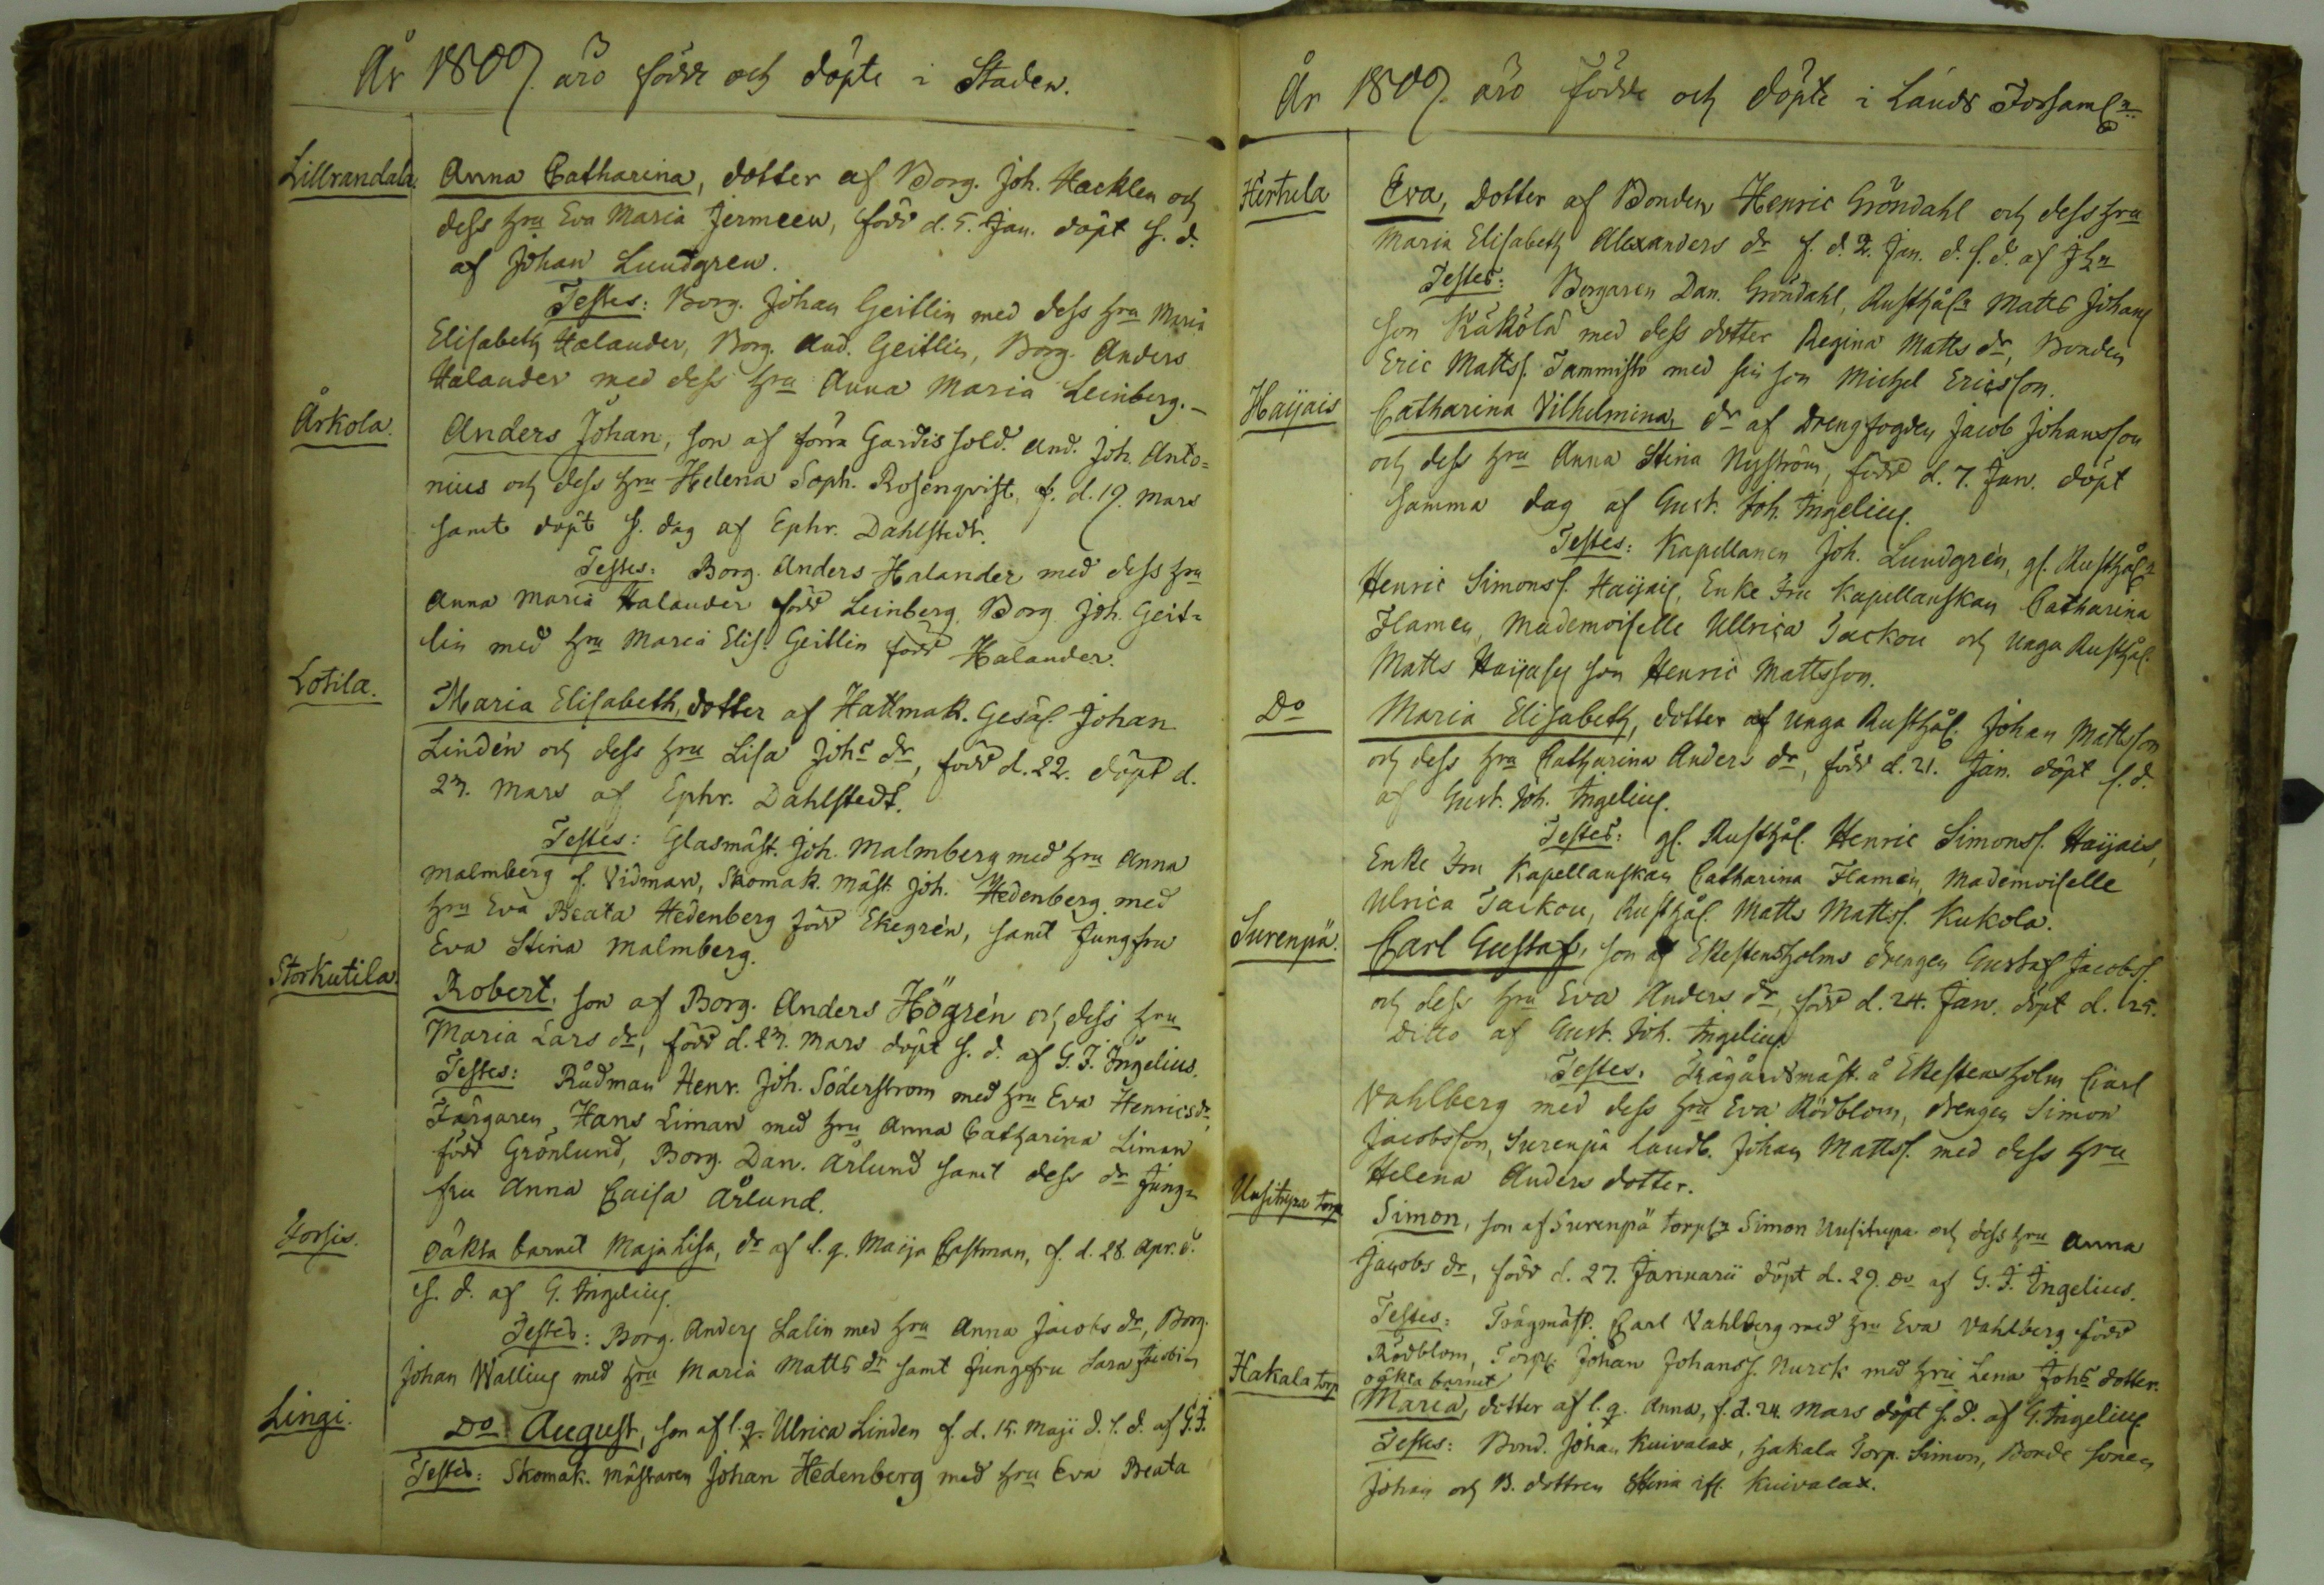 År 1809. äro födde och döpte i Staden.
Lillrandala. Anna Catharina, dotter af Borg. Joh. Hacklen och
dess hru Eva Maria Jermeen, född d. 5. Jan. döpt s. d.
af Johan Lundgren.
Testes: Borg. Johan Geitlin med dess hru Maria
Elisabeth Halander, Borg. And. Geitlin, Borg. Anders
Halander med dess hru Anna Maria Leinberg.
Årkola. Anders Johan, son af förra Gardis sold. And. Joh. Anto=
nius och dess hru Helena Soph. Rosenqvist, f. d. 19. Mars
samt döpt s. dag af Ephr. Dahlstedt.
Testes: Borg. Anders Halander med dess hru
Anna Maria Halander född Leinberg, Borg. Joh. Geit=
lin med hru Maria Elis. Geitlin född Halander.
Lotila. Maria Elisabeth, dotter af Hattmak. Gesäl. Johan
Lindén och dess hru Lisa Johs dr, född d. 22. döpt d.
23. Mars af Ephr. Dahlstedt.
Testes: Glasmäst. Joh. Malmberg med hru Anna
Malmberg f. Vidman, Skomak. Mäst. Joh. Hedenberg med
hru Eva Beata Hedenberg född Ekegrén, samt Jungfru
Eva Stina Malmberg.
Storkutila. Robert, son af Borg. Anders Högrén och dess hru
Maria Lars dr, född d. 23. Mars döpt s. d. af G. J. Ingelius.
Testes: Rådman Henr. Joh. Söderstrom med hru Eva Henricsdr,
Färgaren Hans Liman med hru Anna Catharina Liman
född Grönlund, Borg. Dan. Årlund samt dess dr Jung=
fru Anna Caisa Årlund.
Forsis. Oäkta barnet Maja Lisa, dr af l. q. Maija Castman, f. d. 28. Apr. d.
s. d. af G. Ingelius.
Testes: Borg. Anders Lalin med hru Anna Jacobs dr, Borg.
Johan Wallius med hru Maria Matts dr samt Jungfru Sara
Lingi. Do August, son af l. q. Ulrica Linden f. d. 15. Maji d. s. d. af G. J.
Testes: Skomak. Mästaren Johan Hedenberg med hru Eva Beata
År 1809. äro födde och döpte i Lands Forsamln
Hertula Eva, dotter af Bonden Henric Gröndahl och dess hru
Maria Elisabeth Alexanders dr f. d. 2. Jan. d. s. d. af
Testes: Borgaren Dan. Gröndahl, Rusthåln Matts Johans
son Kukola med dess dotter Regina Matts dr, Bonden
Eric Mattss. Tammisto med sin son Michel Ericsson.
Haijais Catharina Vilhelmina, dr af Drengfogden Jacob Johansson
och dess hru Anna Stina Nyström, född d. 7. Jan. döpt
samma dag af Gust. Joh. Ingelius.
Testes: Kapellanen Joh. Lundgrén, gl. Rusthåln
Henric Simonss. Haijais, Enke Fru Kapellanskan Catharina
Flamen, Mademoiselle Ullrica Tackou och unga Rusthål.
Matts Haijais son Henric Mattsson.
Do Maria Elisabeth, dotter af unga Rusthål. Johan Mattsson
och dess hru Catharina Anders dr, född d. 21. Jan. döpt s. d.
af Gust. Joh. Ingelius.
Testes: gl. Rusthål. Henric Simonss. Haijais,
Enke Fru Kapellanskan Catharina Flamen, Mademoiselle
Ulrica Tackou, Rusthål. Matts Mattss. Kukola.
Surenpä. Carl Gustaf, son af Ekestensholms drengen Gustaf Jacobss.
och dess hru Eva Anders dr, född d. 24. Jan. döpt d. 25.
Ditto af Gust. Joh. Ingelius.
Testes. Trägårdsmäst. å Ekestensholm Carl
Vahlberg med dess hru Eva Rödblom, drengen Simon
Jacobsson, Surenpä landb. Johan Mattss. med dess hru
Helena Anders dotter.
Uusitupa torp Simon, son af Surenpä torpn Simon Uusitupa och dess hru Anna
Jacobs dr, född d. 27. Januarii döpt d. 29. Do af G. J. Ingelius.
Testes: Trägmäst. Carl Vahlberg med hru Eva Vahlberg född
Rödblom, Torp. Johan Johanss. Nurck med hru Lena Johs dotter.
Hakala torp oäkta barnet
Maria, dotter af l. q. Anna, f. d. 24. Mars döpt s. d. af G. Ingelius
Testes: Bond. Johan Kuivalax, Hakala Torp. Simon, Bonde sonen
Johan och B. dottren Stina ifr. Kuivalax.